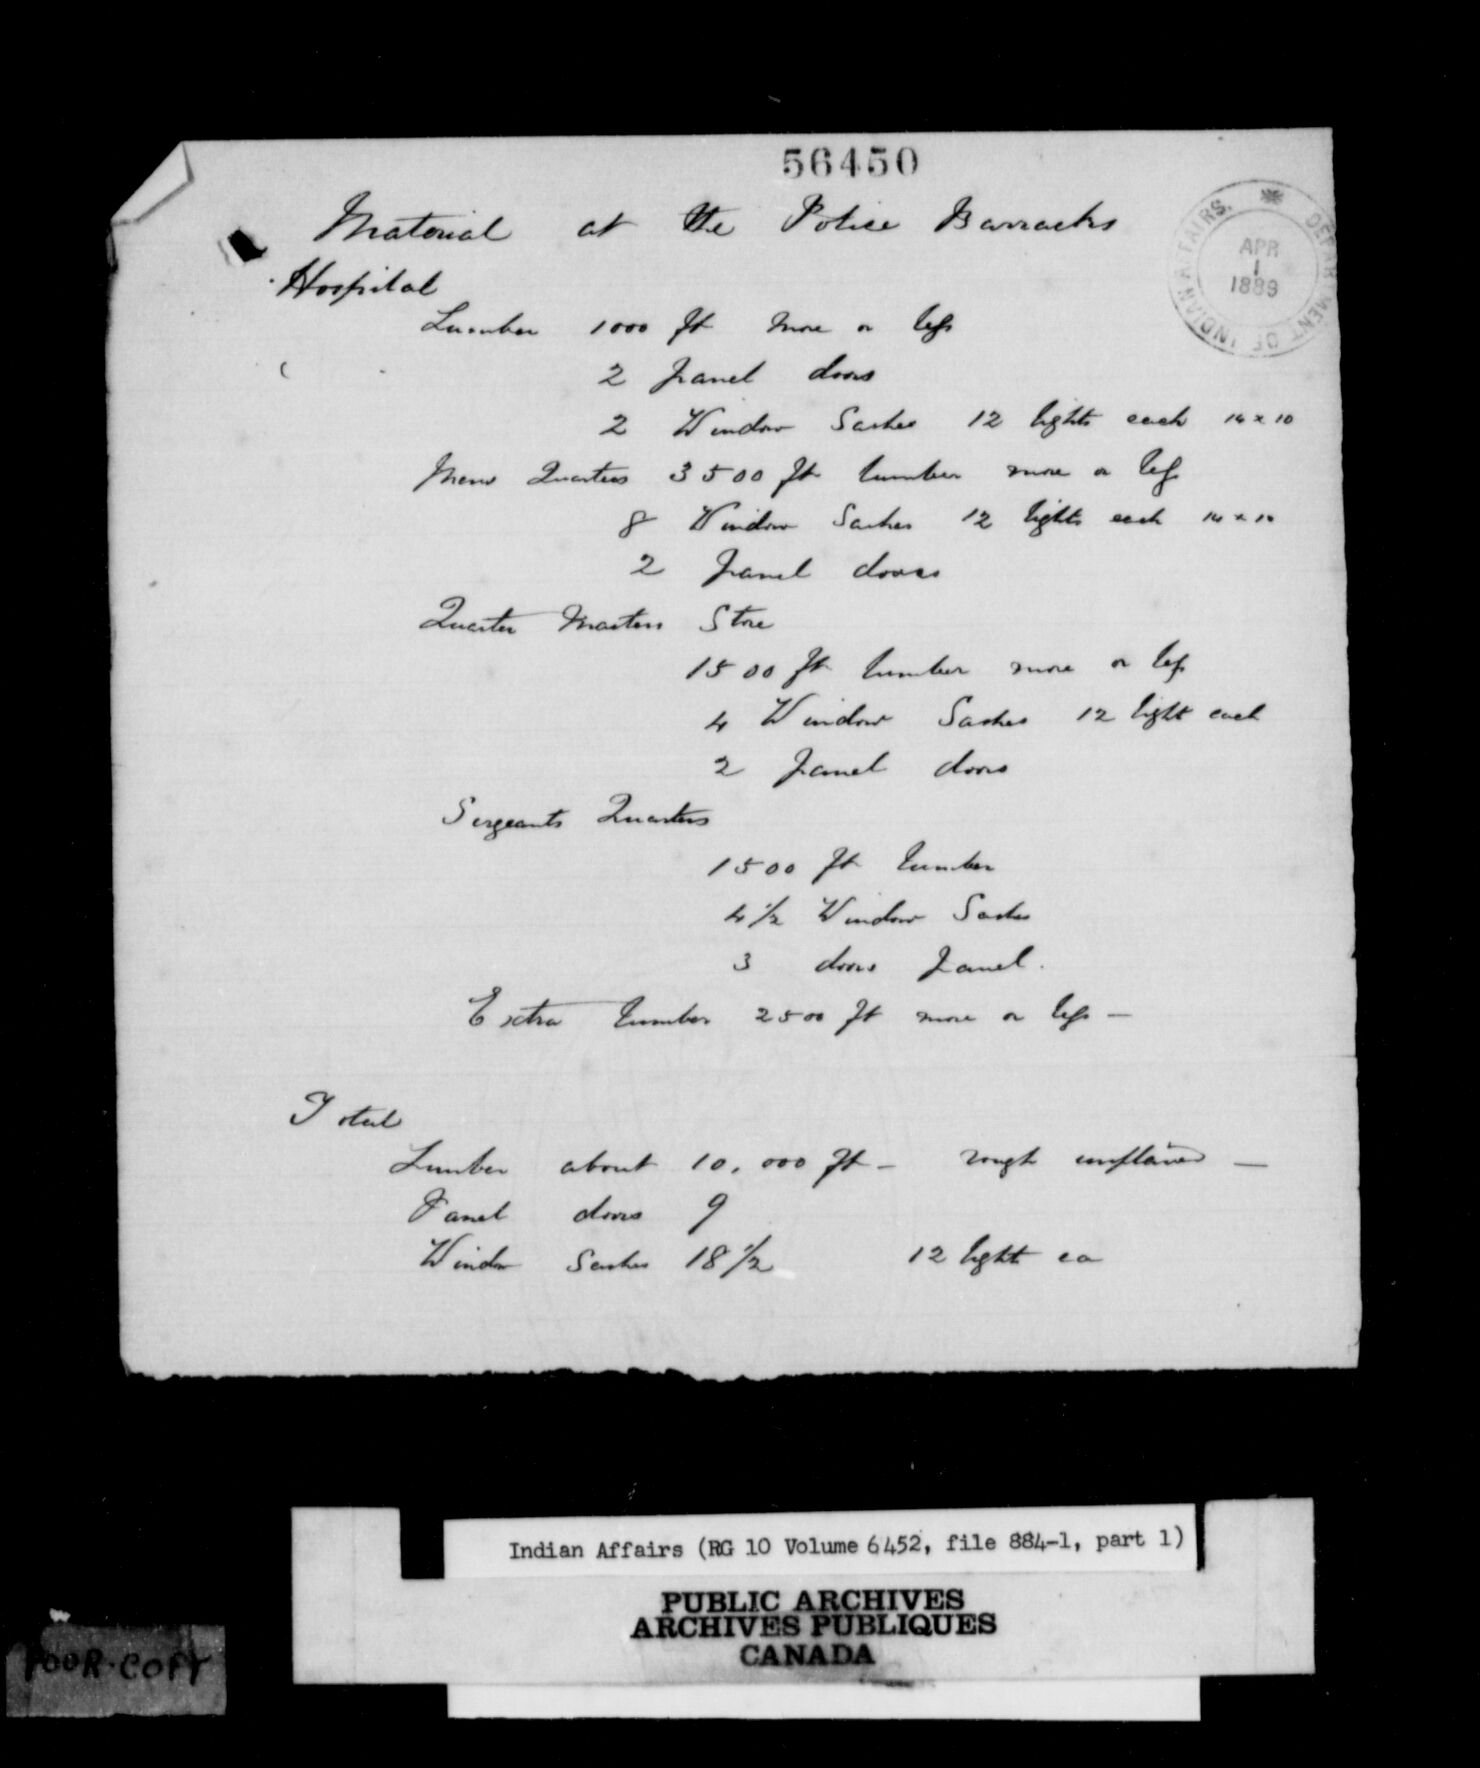 56450
DEPARTMENT OF INDIAN AFFAIRS.
APR
1
1889
Material at the Police Barracks
Hospital
Lumber 1000 ft more or less
2 panel doors
2 Window Sashes 12 lights each 14 x 10
Mens Quarters 3500 ft lumber more or less
8 Window Sashes 12 lights each 14 x 10
2 panel doors
Quarter Masters Store
1500 ft lumber more or less
4 Window Sashes 12 light each
2 panel doors
Sergeants Quarters
1500 ft lumber
4 1/2 Window Sashes
3 doors panel.
Extra lumber 2500 ft more or less —
Total
Lumber about 10,000 ft - rough unplained —
Panel doors 9
Window Sashes 18 1/2 12 light ea
Indian Affairs (RG 10 Volume 6452, file 884-1, part 1)
PUBLIC ARCHIVES
ARCHIVES PUBLIQUES
CANADA
POOR-COPY